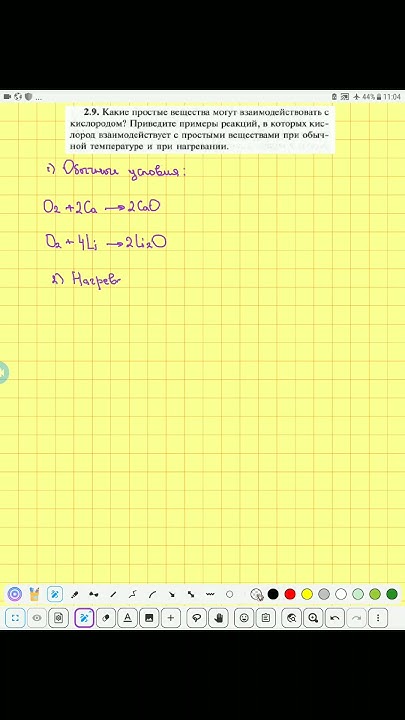 44% 11:04
2.9. Какие простые вещества могут взаимодействовать с
кислородом? Приведите примеры реакций, в которых кис-
лород взаимодействует с простыми веществами при обыч-
ной температуре и при нагревании.
1) Обычные условия:
O2 + 2Ca → 2CaO
O2 + 4Li → 2Li2O
2) Нагрев